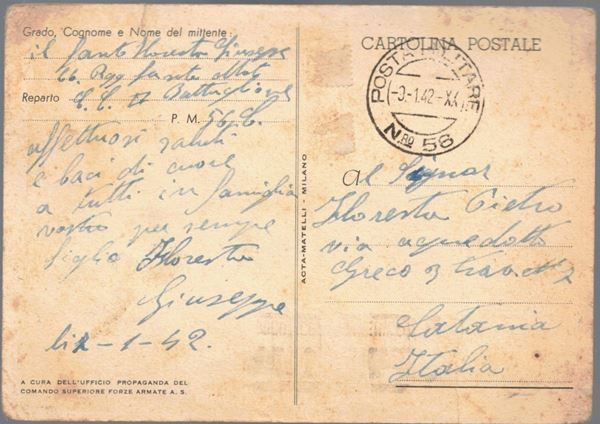 Grado, Cognome e Nome del mittente:
il Fante Floresta Giuseppe
66. Regg fanteria
Reparto C. C. II Battaglione
P. M. 56 C.
affettuosi saluti
e baci di cuore
a tutti in famiglia
vostro per sempre
figlio Floresta
Giuseppe
li 2-1-42.
A CURA DELL'UFFICIO PROPAGANDA DEL
COMANDO SUPERIORE FORZE ARMATE A. S.
ACTA-MATELLI - MILANO
CARTOLINA POSTALE
POSTA MILITARE
-1.42-XX
NRO 56
Al Signor
Floresta Pietro
via aquedotto
Greco 3 trav. n° 2
Catania
Italia